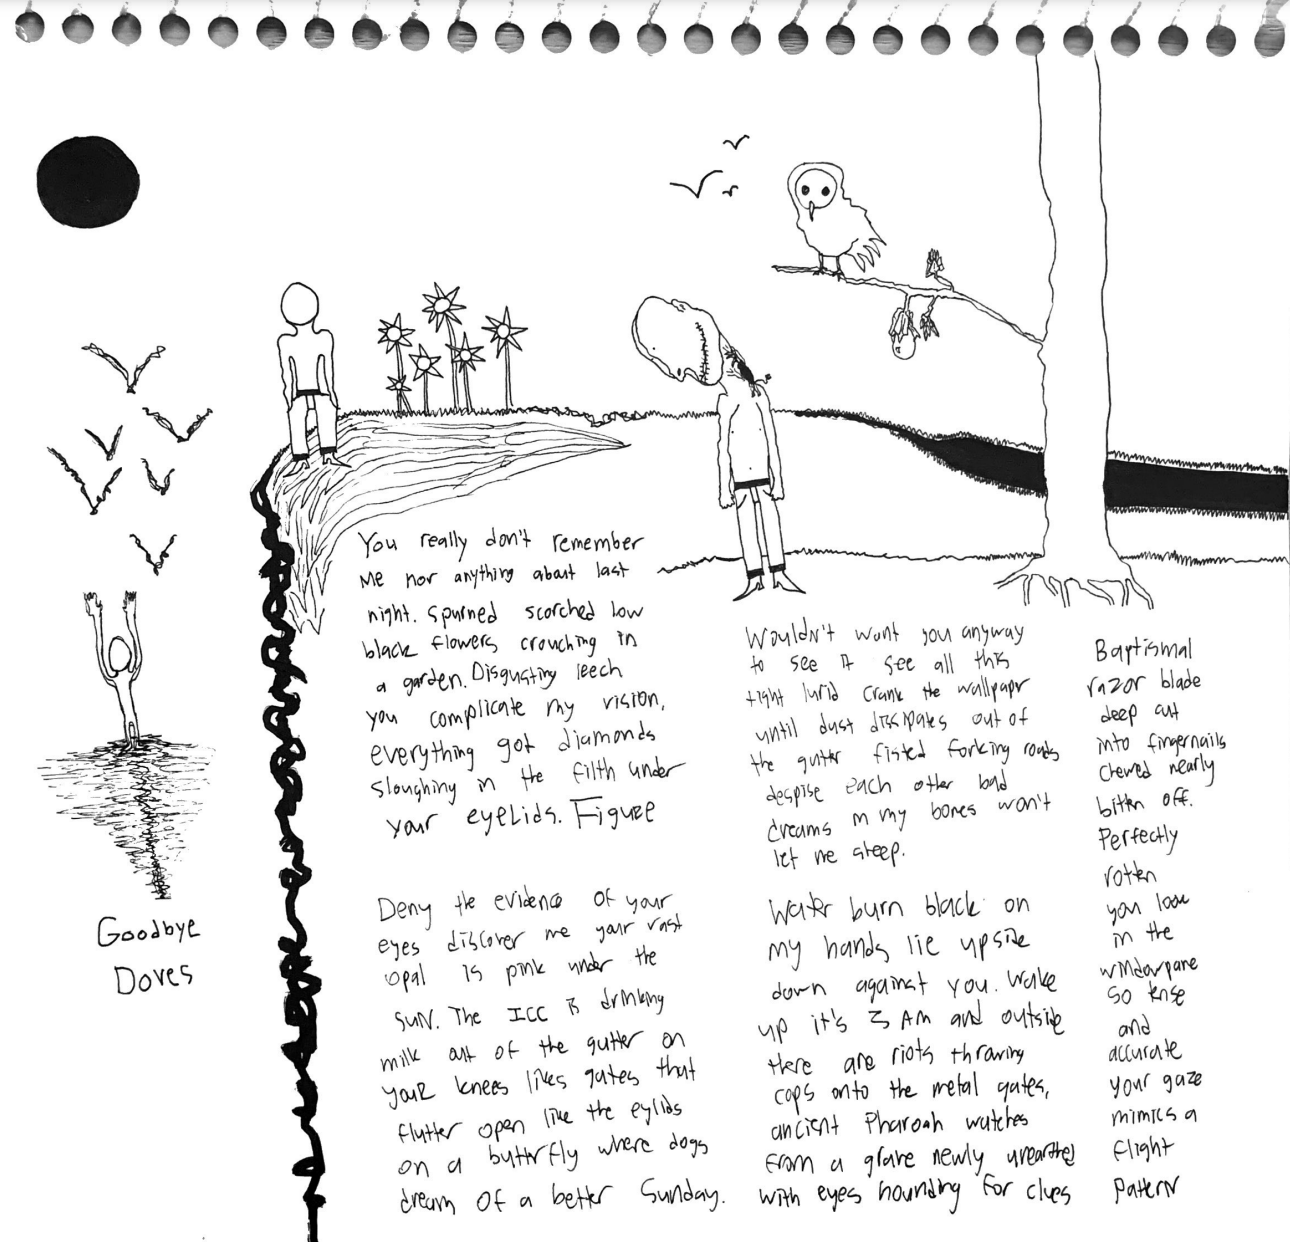 You really don't remember
me nor anything about last
night. Spurned scorched low
black flowers crouching in
a garden. Disgusting leech
you complicate my vision,
everything got diamonds
sloughing in the filth under
your eyelids. Figure
Deny the evidence of your
eyes discover me your vast
opal is pink under the
sun. The ICC is drinking
milk out of the gutter on
your knees likes gates that
flutter open like the eylids
on a butterfly where dogs
dream of a better Sunday.
Wouldn't want you anyway
to see it see all this
tight lurid crank the wallpapr
until dust dissipates out of
the gutter fisted forking roads
despise each other bad
dreams in my bones won't
let me sleep.
Water burn black on
my hands lie upside
down against you. Wake
up it's 3 AM and outside
there are riots throwing
cops onto the metal gates,
ancient Pharoah watches
from a grave newly unearthed
with eyes hounding for clues
Baptismal
razor blade
deep cut
into fingernails
chewed nearly
bitten off.
Perfectly
rotten
you look
in the
windowpane
so tense
and
accurate
your gaze
mimics a
flight
patern
Goodbye
Doves